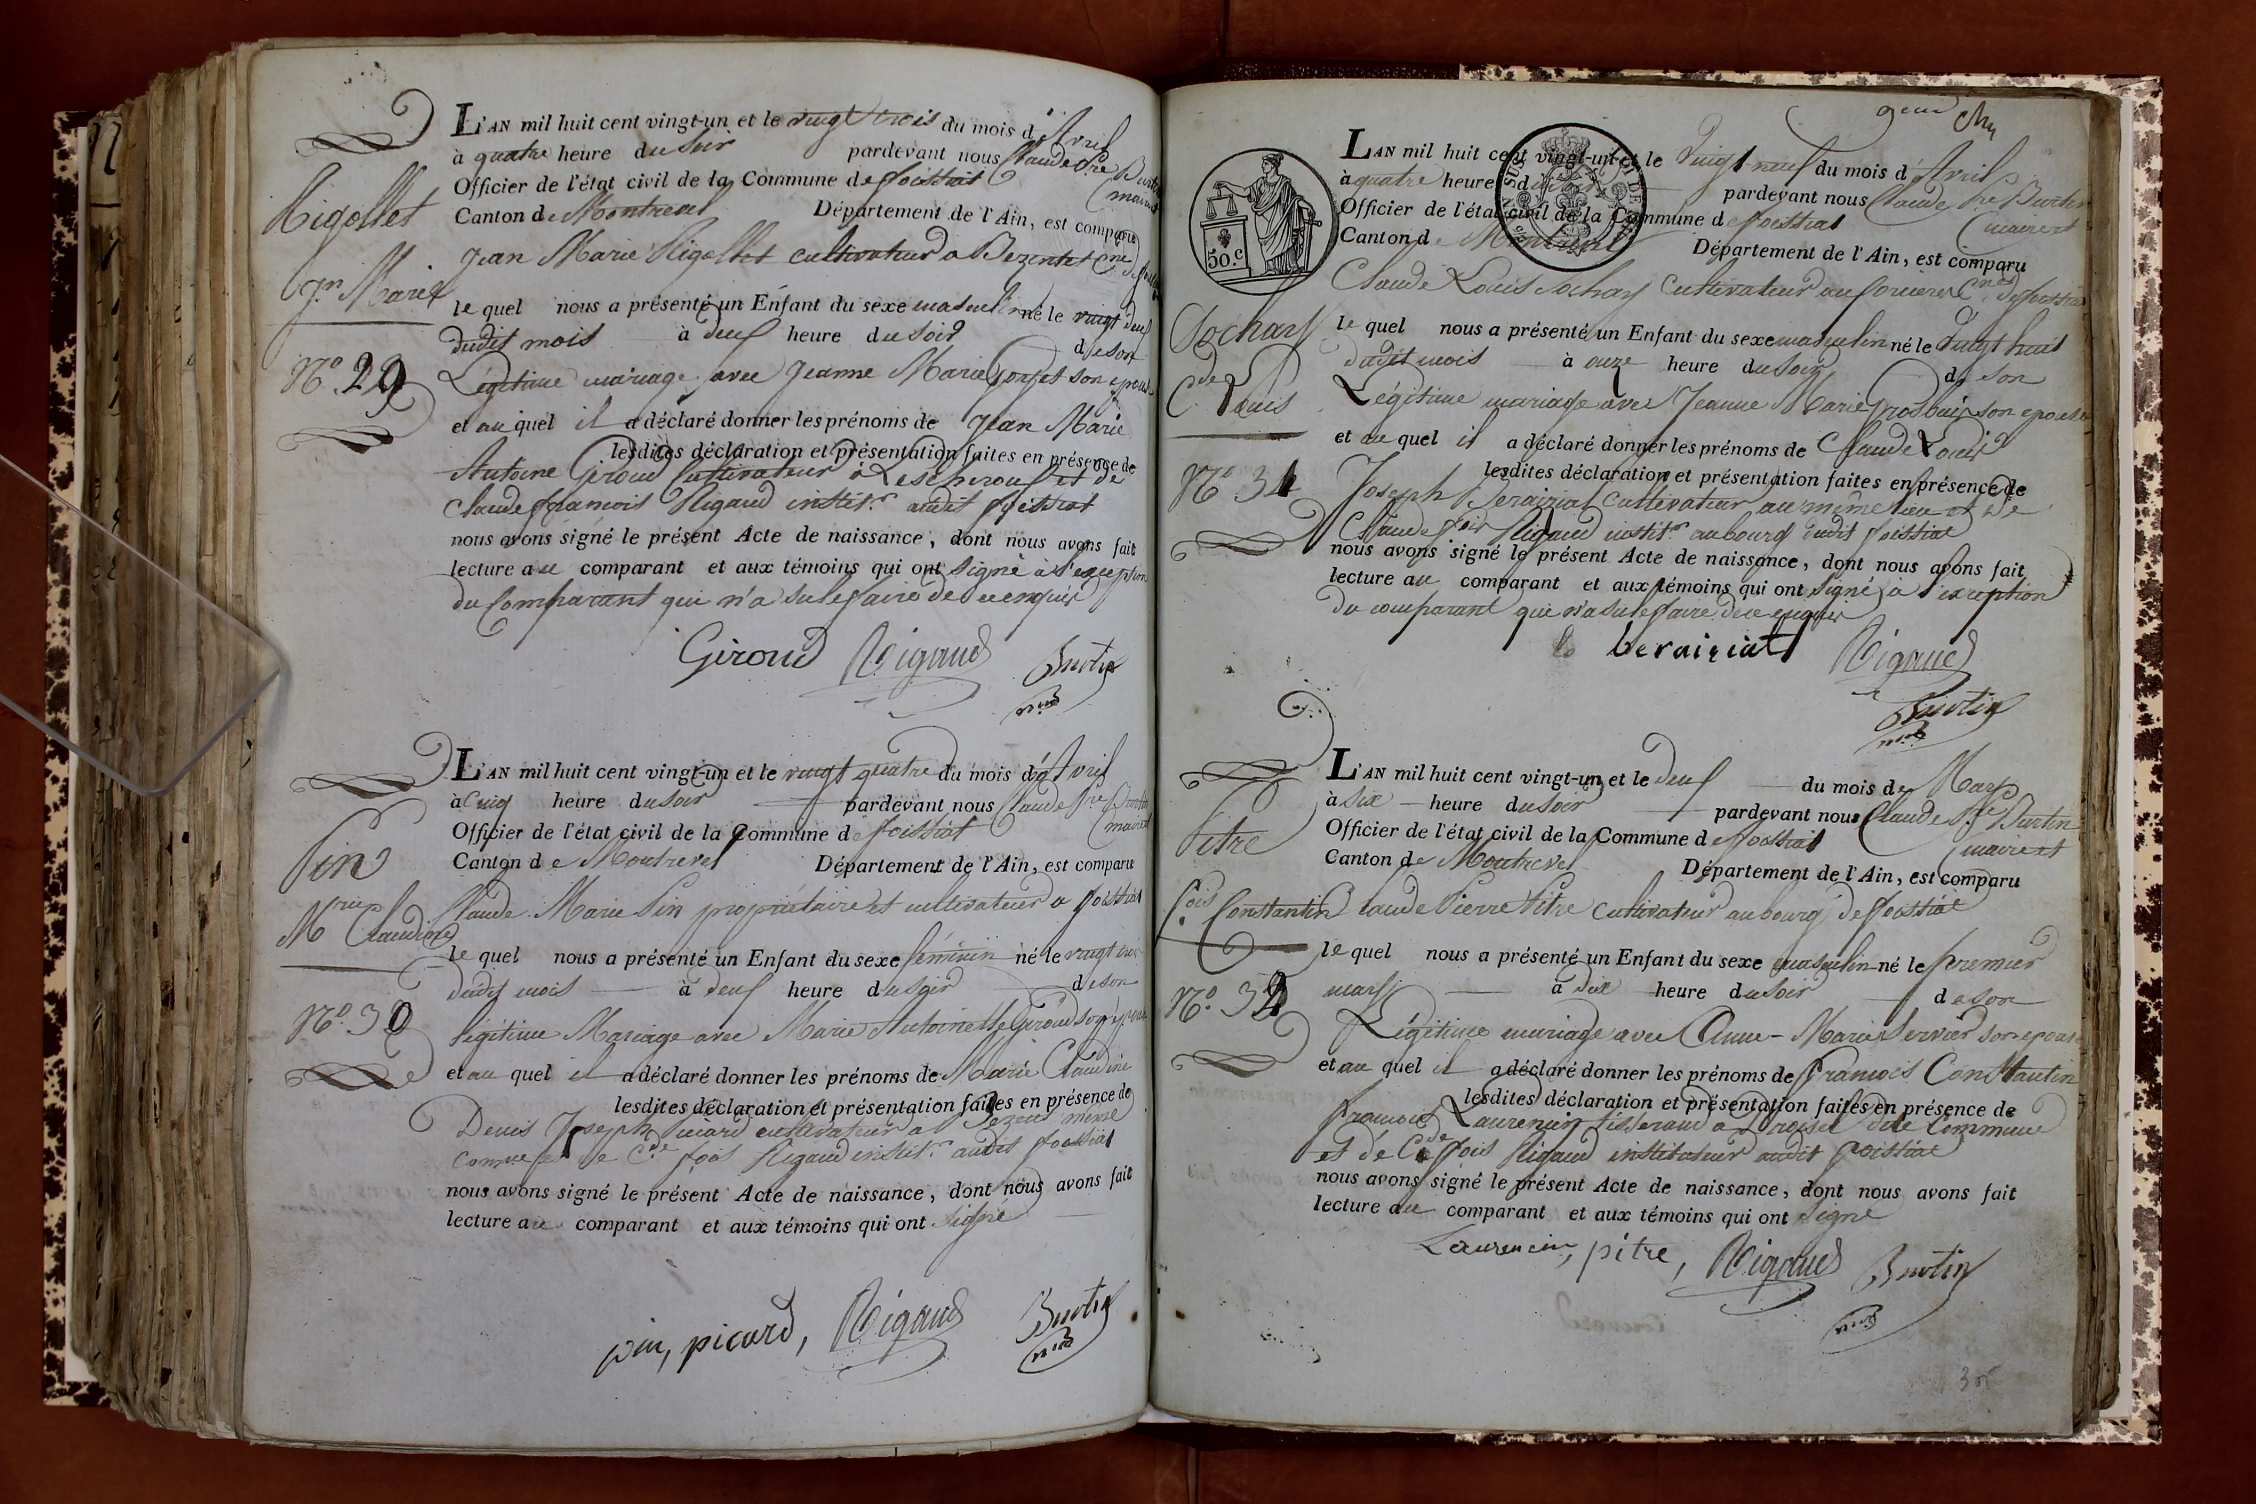 Rigollet
Jn Marie
No. 29
L'AN mil huit cent vingt-un et le vingt trois du mois d'Avril
à quatre heure du soir pardevant nous Claude Pre Burtin
maire et
Officier de l'état civil de la Commune de foissiat
Canton de Montrevel Département de l'Ain, est comparu
Jean Marie Rigollet cultivateur a Bezentet Cne de foissiat
le quel nous a présenté un Enfant du sexe masculin né le vingt deux
dudit mois à deux heure du soir de son
Légitime mariage avec Jeanne Marie son epouse
et au quel il a déclaré donner les prénoms de Jean Marie
lesdites déclaration et présentation faites en présence de
Antoine Giroud Cultivateur à Lescheroux et de
Claude francois Rigaud instit.r audit foissiat
nous avons signé le présent Acte de naissance, dont nous avons fait
lecture au comparant et aux témoins qui ont signé à l'exception
du Comparant qui n'a su le faire de ce enquis
Giroud Rigaud Burtin
Pin
Mrie Claudine
No. 30
L'AN mil huit cent vingt-un et le vingt quatre du mois d'Avril
à Cinq heure du soir pardevant nous Claude Pre Burtin
maire et
Officier de l'état civil de la Commune de foissiat
Canton de Montrevel Département de l'Ain, est comparu
Claude Marie Pin propriétaire et cultivateur a foissiat
le quel nous a présenté un Enfant du sexe féminin né le vingt trois
dudit mois à deux heure du soir de son
légitime Mariage avec Marie Antoinette Giroud son épouse
et au quel il a déclaré donner les prénoms de Marie Claudine
lesdites déclaration et présentation faites en présence de
Denis Joseph Picard cultivateur a Bezentet même
Comne et de Cde fois Rigaud instit.r audit foissiat
nous avons signé le présent Acte de naissance, dont nous avons fait
lecture au comparant et aux témoins qui ont signé
pin, picard, Rigaud Burtin
50.c
Sochay
Cde Louis
No 31
L'AN mil huit cent vingt-un et le vingt neuf du mois d'Avril
à quatre heure du soir pardevant nous Claude Pre Burtin
maire et
Officier de l'état civil de la Commune de foissiat
Canton de Montrevel Département de l'Ain, est comparu
Claude Louis Sochay Cultivateur Cne de foissiat
le quel nous a présenté un Enfant du sexe masculin né le vingt huit
dudit mois à onze heure du soir de son
Légitime mariage avec Jeanne Marie son epouse
et au quel il a déclaré donner les prénoms de Claude Louis
lesdites déclaration et présentation faites en présence de
Joseph Beraiziat Cultivateur au même lieu et de
Claude fois Rigaud instit.r au bourg dudit foissiat
nous avons signé le présent Acte de naissance, dont nous avons fait
lecture au comparant et aux témoins qui ont signé à l'exception
du comparant qui n'a su le faire de ce enquis
beraiziat Rigaud
Burtin
Pitre
fois Constantin
No. 32
L'AN mil huit cent vingt-un et le deux du mois de May
à six heure du soir pardevant nous Claude Pre Burtin
maire et
Officier de l'état civil de la Commune de foissiat
Canton de Montrevel Département de l'Ain, est comparu
Claude Pierre Pitre Cultivateur au bourg de foissiat
le quel nous a présenté un Enfant du sexe masculin né le premier
à six heure du soir de son
Légitime mariage avec Anne-Marie Servier son epouse
et au quel il a déclaré donner les prénoms de francois Constantin
lesdites déclaration et présentation faites en présence de
francois Laurencin tisserand a dite Commune
et de Cde fois Rigaud instituteur audit foissiat
nous avons signé le présent Acte de naissance, dont nous avons fait
lecture au comparant et aux témoins qui ont signé
Laurencin, pitre, Rigaud Burtin